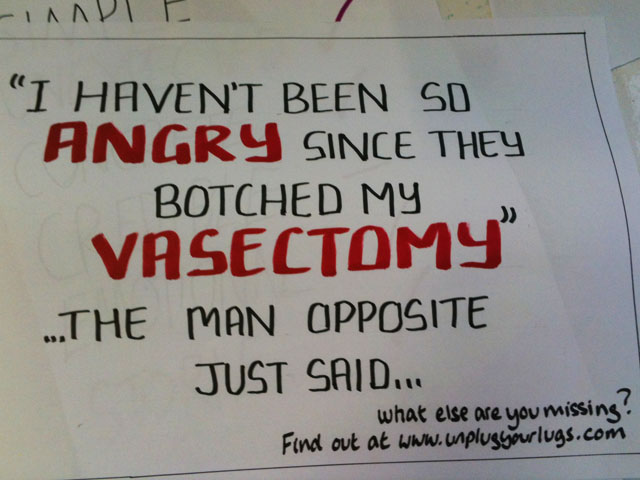 SIMPLE
"I HAVEN'T BEEN SO
ANGRY SINCE THEY
BOTCHED MY
VASECTOMY"
...THE MAN OPPOSITE
JUST SAID...
what else are you missing?
Find out at www.unplugyourlugs.com